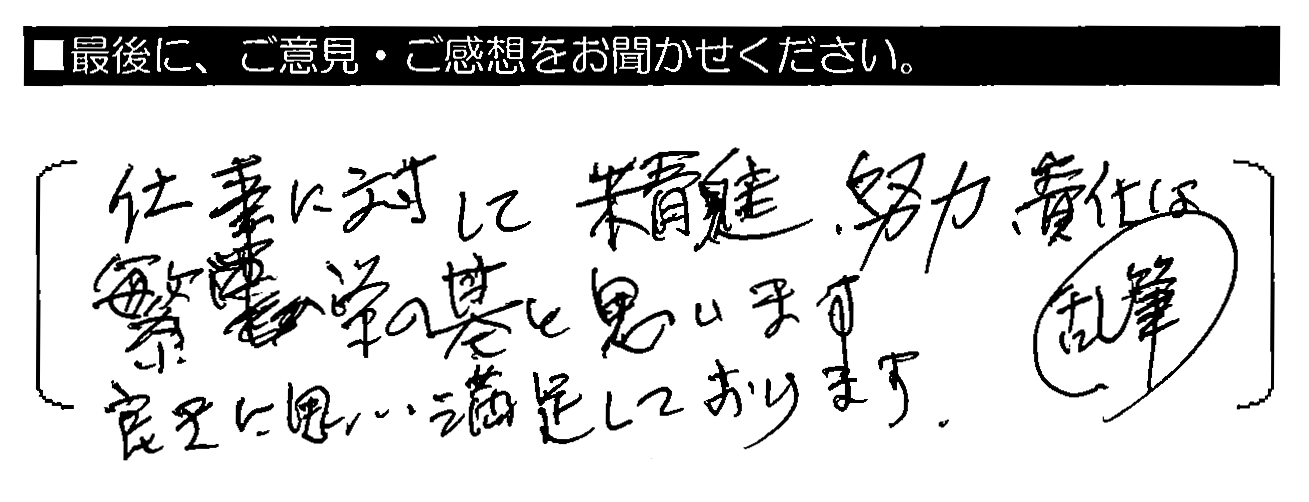 ■最後に、ご意見・ご感想をお聞かせください。
仕事に対して精進、努力、責任は
繁栄の基と思います 乱筆
良足に思い満足しております。